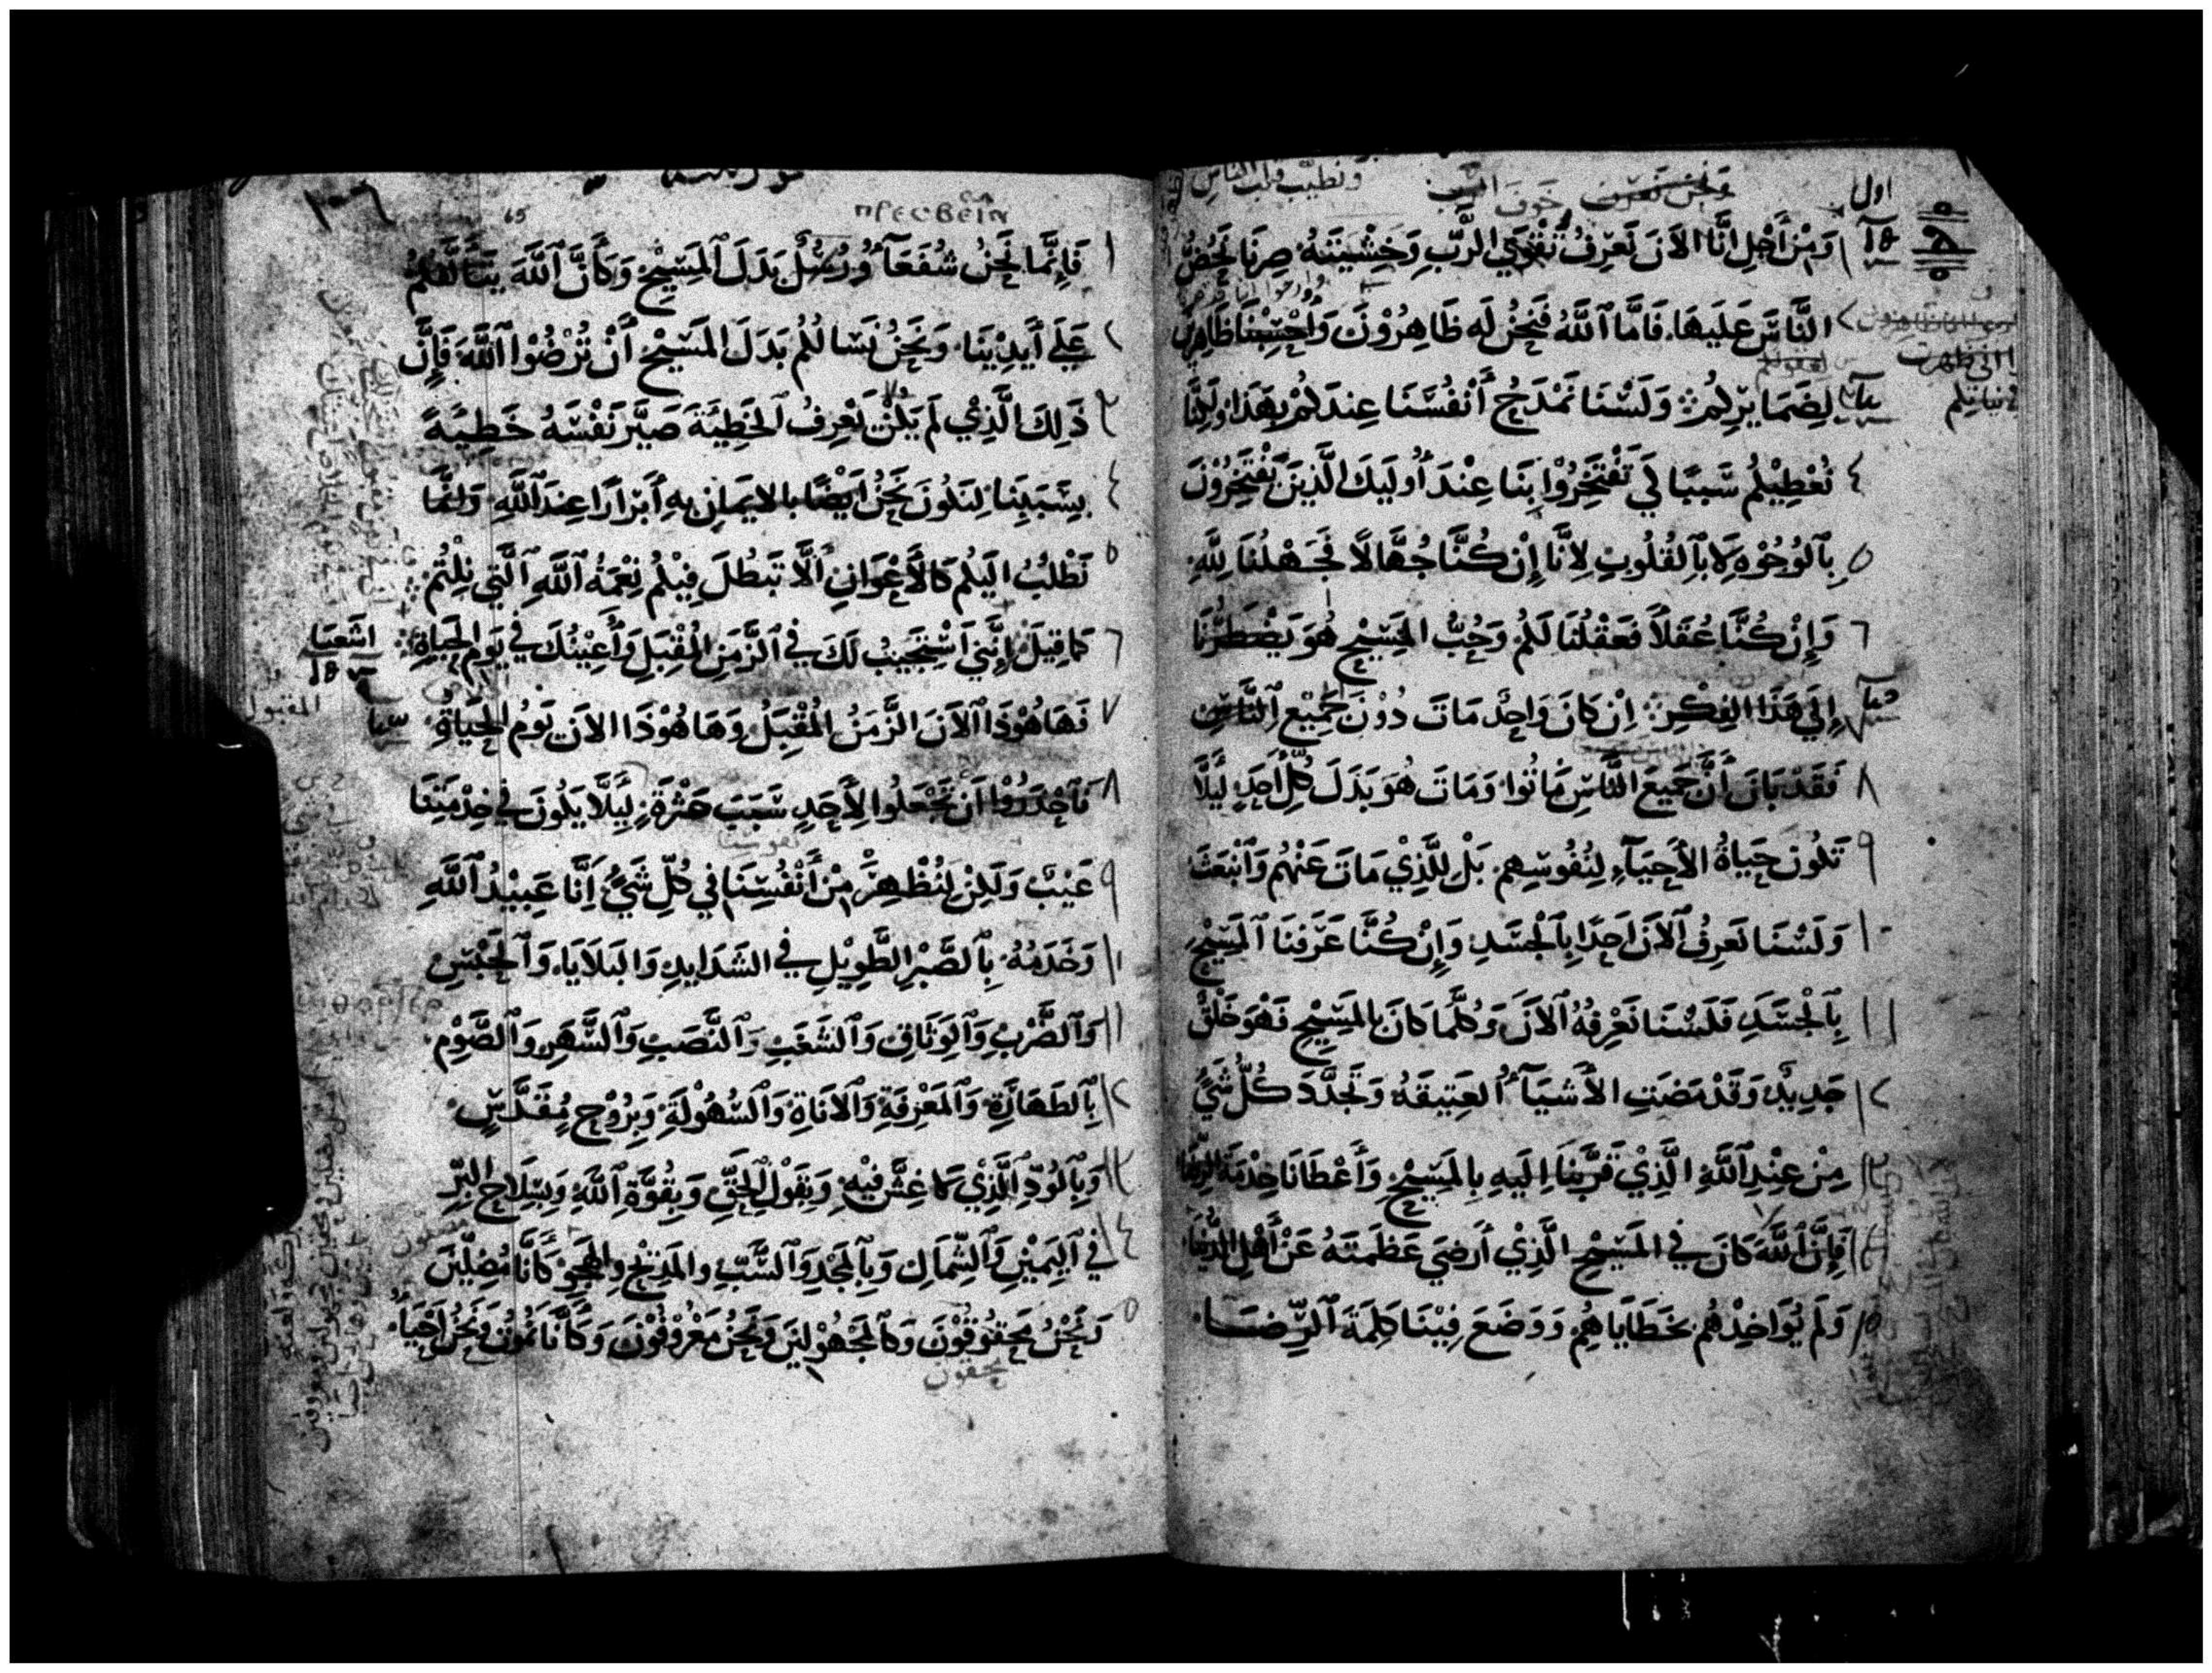 ونطيب قلب الناس
ونحن نعرف خوف الرب
اول
١ وَمِنْ أَجْلِ انَّا الآنَ نَعْرِفُ تَقْوَي الرَّبِ وَخِشْيَتَهُ صِرنَا نَحُضُّ
٢ النَّاسَ عَلَيهَا. فَامَّا ٱللَّهُ فَنَحْنُ لَه ظَاهِرُوْنَ وَاحْتِسِبْنَا ظَاهِرِيْنَ
انى ظهرت
لِضَمَايرِكُمْ وَلَسْنَا نَمْدَحُ أَنْفُسَنَا عِندَكُمْ بِهَذَا وَلَكِنَّا
٤ نُعْطِيْكُم سَبَبًا لِكَي تَفْتَخِرُوْا بِنَا عِنْدَ أُولَيِكَ الَّذِينَ يَفْتَخِرُوْنَ
٥ بِٱلوُجُوْهِ لَا بِٱلقُلُوبِ لِانَّا إِنْ كُنَّا جُهَّالًا فَجَهْلُنَا لِلَّهِ
٦ وَإِنْ كُنَّا عُقَلاً فَعَقْلُنَا لَكُم وَحُبُّ المَسِيْحِ هُوَ يَضْطَرُّنَا
٧ إِلَي هَذَا الفِكْرِ. اِنْ كَانَ وَاحِدٌ مَاتَ دُوْنَ جَمِيْعِ ٱلنَّاسِ
٨ فَقَدْ بَانَ أَنَّ جَمِيعَ النَّاسِ مَاتُوا. وَمَاتَ هُوَ بَدَلَ كُلِّ أَحَدٍ لِيَلَّا
٩ تَكُونَ حَيَاةُ الأَحيَآءِ لِنُفُوسِهِم. بَلْ لِلَّذِيْ مَاتَ عَنْهُم وَٱنْبَعَثَ
١٠ وَلَسْنَا نَعرِفُ ٱلآنَ اَحَدًا بِٱلجَسَدِ وَإِنْ كُنَّا عَرَفنَا ٱلمَسِيْحَ
١١ بِٱلجَسَدِ فَلَسْنَا نَعْرِفُهُ ٱلآنَ وَكُلَّمَا كَانَ بِالمَسِيْحِ فَهُوَ خَلْقٌ
١٢ جَدِيدٌ وَقَدْ مَضَتِ الأَشيَآءُ العَتِيقَةُ وَتَجَدَّدَ كُلُّ شَيٍ
١٣ مِنْ عِنْدِ ٱللَّهِ الَّذِيْ قَرَّبَنَا اِلَيهِ بِالمَسِيْحِ وَأَعْطَانَا خِدْمَةَ الرِّضَا
١٤ فَإِنَّ ٱللَّهَ كَانَ فِي المَسِيْحِ الَّذِيْ أَرضَي عَظَمَتَهُ عَنْ أَهْلِ الدُّنْيَا
١٥ وَلَم يُوَاخِذْهُم بِخَطَايَاهُم وَوَضَعَ فِيْنَا كَلِمَةَ ٱلرِّضَا
١٠٦
65
πρεσβεια
١ فَإِنَّمَا نَحْنُ شُفَعَآءُ وَرُسُلٌ بَدَلَ ٱلمَسِيْحِ وَكَأَنَّ ٱللَّهَ يَسَالُكُمْ
٢ عَلَي أَيدِيْنَا. وَنَحْنُ نَسَالُكُم بَدَلَ المَسِيْحِ أَنْ تُرْضُوْا ٱللَّهَ فَإِنَّ
٣ ذَلِكَ الَّذِي لَم يَكُنْ يَعْرِفُ ٱلخَطِيْئَةَ صَيَّرَ نَفْسَهُ خَطِيَّةً
٤ بِسَبَبِنَا لِنَكُونَ نَحْنُ اَيْضًا بالايمَانِ بِهِ أَبْرَارًا عِندَ ٱللَّهِ وَانَّمَا
٥ نَطْلُبُ اليكُم كَالأَعْوَانِ أَلَّا تَبْطُلَ فِيكُم نِعْمَةُ ٱللَّهِ ٱلَّتِي نِلْتُم
٦ كَمَا قِيلَ إِنَّنِي اَسْتَجِيبُ لَكَ فِي ٱلزَّمَنِ المُقْبِلِ وَأُعِيْنُكَ فِي يَوْمِ الحَيَاةِ
اشعيا
المقبول
٧ فَهَاهُوْذَا ٱلآنَ الزَّمَنُ المُقْبِلُ وَهَاهُوْذَا الآنَ يَومُ الحَيَاةِ
٨ فَٱحْذَرُوْا اَنْ تَجْعَلُوا لِأَحَدٍ سَبَبَ عَثْرَةٍ لِيَلَّا يَكُونَ فِي خِدْمَتِنَا
نفوسنا
٩ عَيْبٌ وَلَكِنْ لِنُظْهِرْ مِنْ أَنْفُسِنَا فِي كُلِّ شَيٍ اَنَّا عَبِيْدُ ٱللَّهِ
١٠ وَخَدَمُهُ بِٱلصَّبْرِ الطَّوِيْلِ فِي الشَّدَايِدِ وَالبَلَايَا وَٱلحَبْسِ
١١ وَٱلضَّرْبِ وَٱلوِثَاقِ وَٱلشَغَبِ وَٱلنَّصَبِ وَٱلسَّهَرِ وَٱلصَّوْمِ
١٢ بِٱلطَهَارَةِ وَٱلمَعْرِفَةِ وَٱلانَاةِ وَٱلسُّهُولَةِ وَبِرُوْحٍ مُقَدَّسٍ
١٣ وَبِٱلوُدِّ ٱلَّذِيْ لَا غِشَّ فِيْهِ وَبِقَوْلِ الحَقِّ وَبِقُوَّةِ ٱللَّهِ وَبِسِلَاحِ البِرِّ
١٤ فِي ٱليَمِيْنِ وَٱلشِّمَالِ وَبِٱلمَجْدِ وَٱلسَّبِّ وَالمَدِيْحِ وَالهَجوِ كَأَنَّا مُضِلِّيْنَ
١٥ وَنَحْنُ مُحِقُوْقُوْنَ وَكَٱلمَجْهُوْلِينَ وَنَحْنُ مَعْرُوْفُوْنَ وَكَأَنَّا نَمُوْتُ وَنَحْنُ اَحْيَآءٌ
محقون